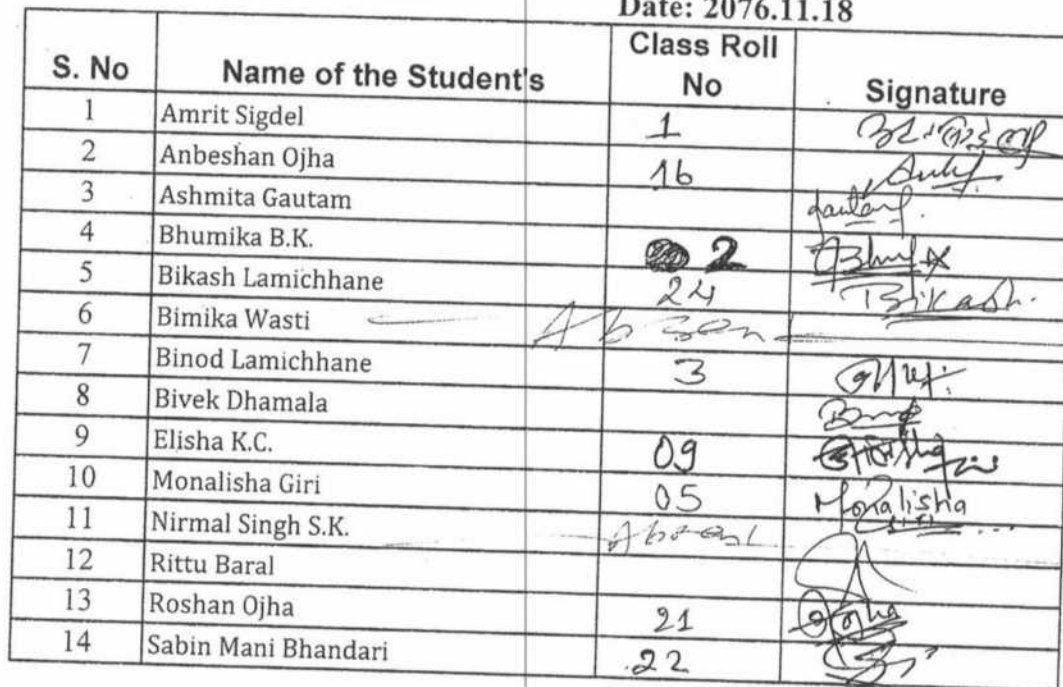 Date: 2076.11.18
S. No Name of the Student's Class Roll No Signature
1 Amrit Sigdel 1
2 Anbeshan Ojha 16
3 Ashmita Gautam Gautam
4 Bhumika B.K. 2
5 Bikash Lamichhane 24 Bikash
6 Bimika Wasti Absent
7 Binod Lamichhane 3
8 Bivek Dhamala
9 Elisha K.C. 09
10 Monalisha Giri 05 Monalisha
11 Nirmal Singh S.K. Absent
12 Rittu Baral
13 Roshan Ojha 21 Ojha
14 Sabin Mani Bhandari 22